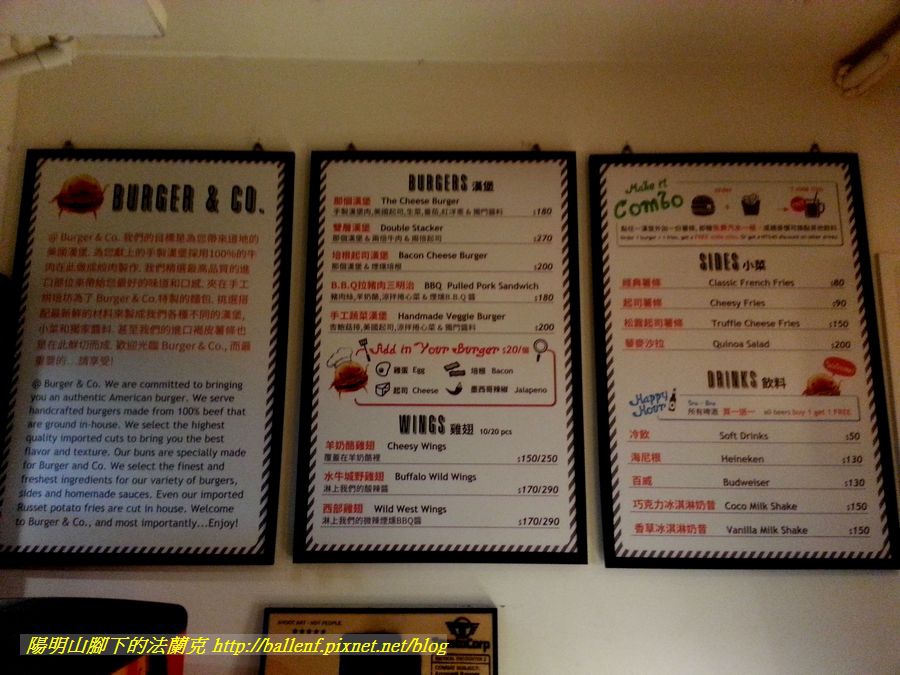 BURGER & CO.
@ Burger & Co. 我們的目標是為您帶來道地的
美國漢堡, 為您獻上的手製漢堡採用100%的牛
肉在此做成絞肉製作, 我們精選最高品質的進
口部位來帶給您最好的味道和口感, 夾在手工
烘培坊為了 Burger & Co.特製的麵包, 挑選搭
配最新鮮的材料來製成我們各種不同的漢堡,
小菜和獨家醬料. 甚至我們的進口褐皮薯條也
是在此鮮切而成. 歡迎光臨 Burger & Co., 而最
重要的...請享受!
@ Burger & Co. We are committed to bringing
you an authentic American burger. We serve
handcrafted burgers made from 100% beef that
are ground in-house. We select the highest
quality imported cuts to bring you the best
flavor and texture. Our buns are specially made
for Burger and Co. We select the finest and
freshest ingredients for our variety of burgers,
sides and homemade sauces. Even our imported
Russet potato fries are cut in house. Welcome
to Burger & Co., and most importantly...Enjoy!
BURGERS 漢堡
那個漢堡 The Cheese Burger
手製漢堡肉,美國起司,生菜,番茄,紅洋蔥 & 獨門醬料 $180
雙層漢堡 Double Stacker
那個漢堡 & 兩倍牛肉 & 兩倍起司 $270
培根起司漢堡 Bacon Cheese Burger
那個漢堡 & 煙燻培根 $200
B.B.Q拉豬肉三明治 BBQ Pulled Pork Sandwich
豬肉絲,羊奶酪,涼拌捲心菜 & 煙燻B.B.Q 醬 $180
手工蔬菜漢堡 Handmade Veggie Burger
杏鮑菇排,美國起司,涼拌捲心菜 & 獨門醬料 $200
Add in Your Burger $20/個
雞蛋 Egg 培根 Bacon
起司 Cheese 墨西哥辣椒 Jalapeno
WINGS 雞翅 10/20 pcs
羊奶酪雞翅 Cheesy Wings
覆蓋在羊奶酪裡 $150/250
水牛城野雞翅 Buffalo Wild Wings
淋上我們的酸辣醬 $170/290
西部雞翅 Wild West Wings
淋上我們的微辣煙燻BBQ醬 $170/290
Make it
Combo
SIDES 小菜
經典薯條 Classic French Fries $80
起司薯條 Cheesy Fries $90
松露起司薯條 Truffle Cheese Fries $150
藜麥沙拉 Quinoa Salad $200
DRINKS 飲料
Happy
Hour
所有啤酒 買一送一 all beers buy 1 get 1 FREE
冷飲 Soft Drinks $50
海尼根 Heineken $130
百威 Budweiser $130
巧克力冰淇淋奶昔 Coco Milk Shake $150
香草冰淇淋奶昔 Vanilla Milk Shake $150
SHOOT ART - NOT PEOPLE
陽明山腳下的法蘭克 http://ballenf.pixnet.net/blog